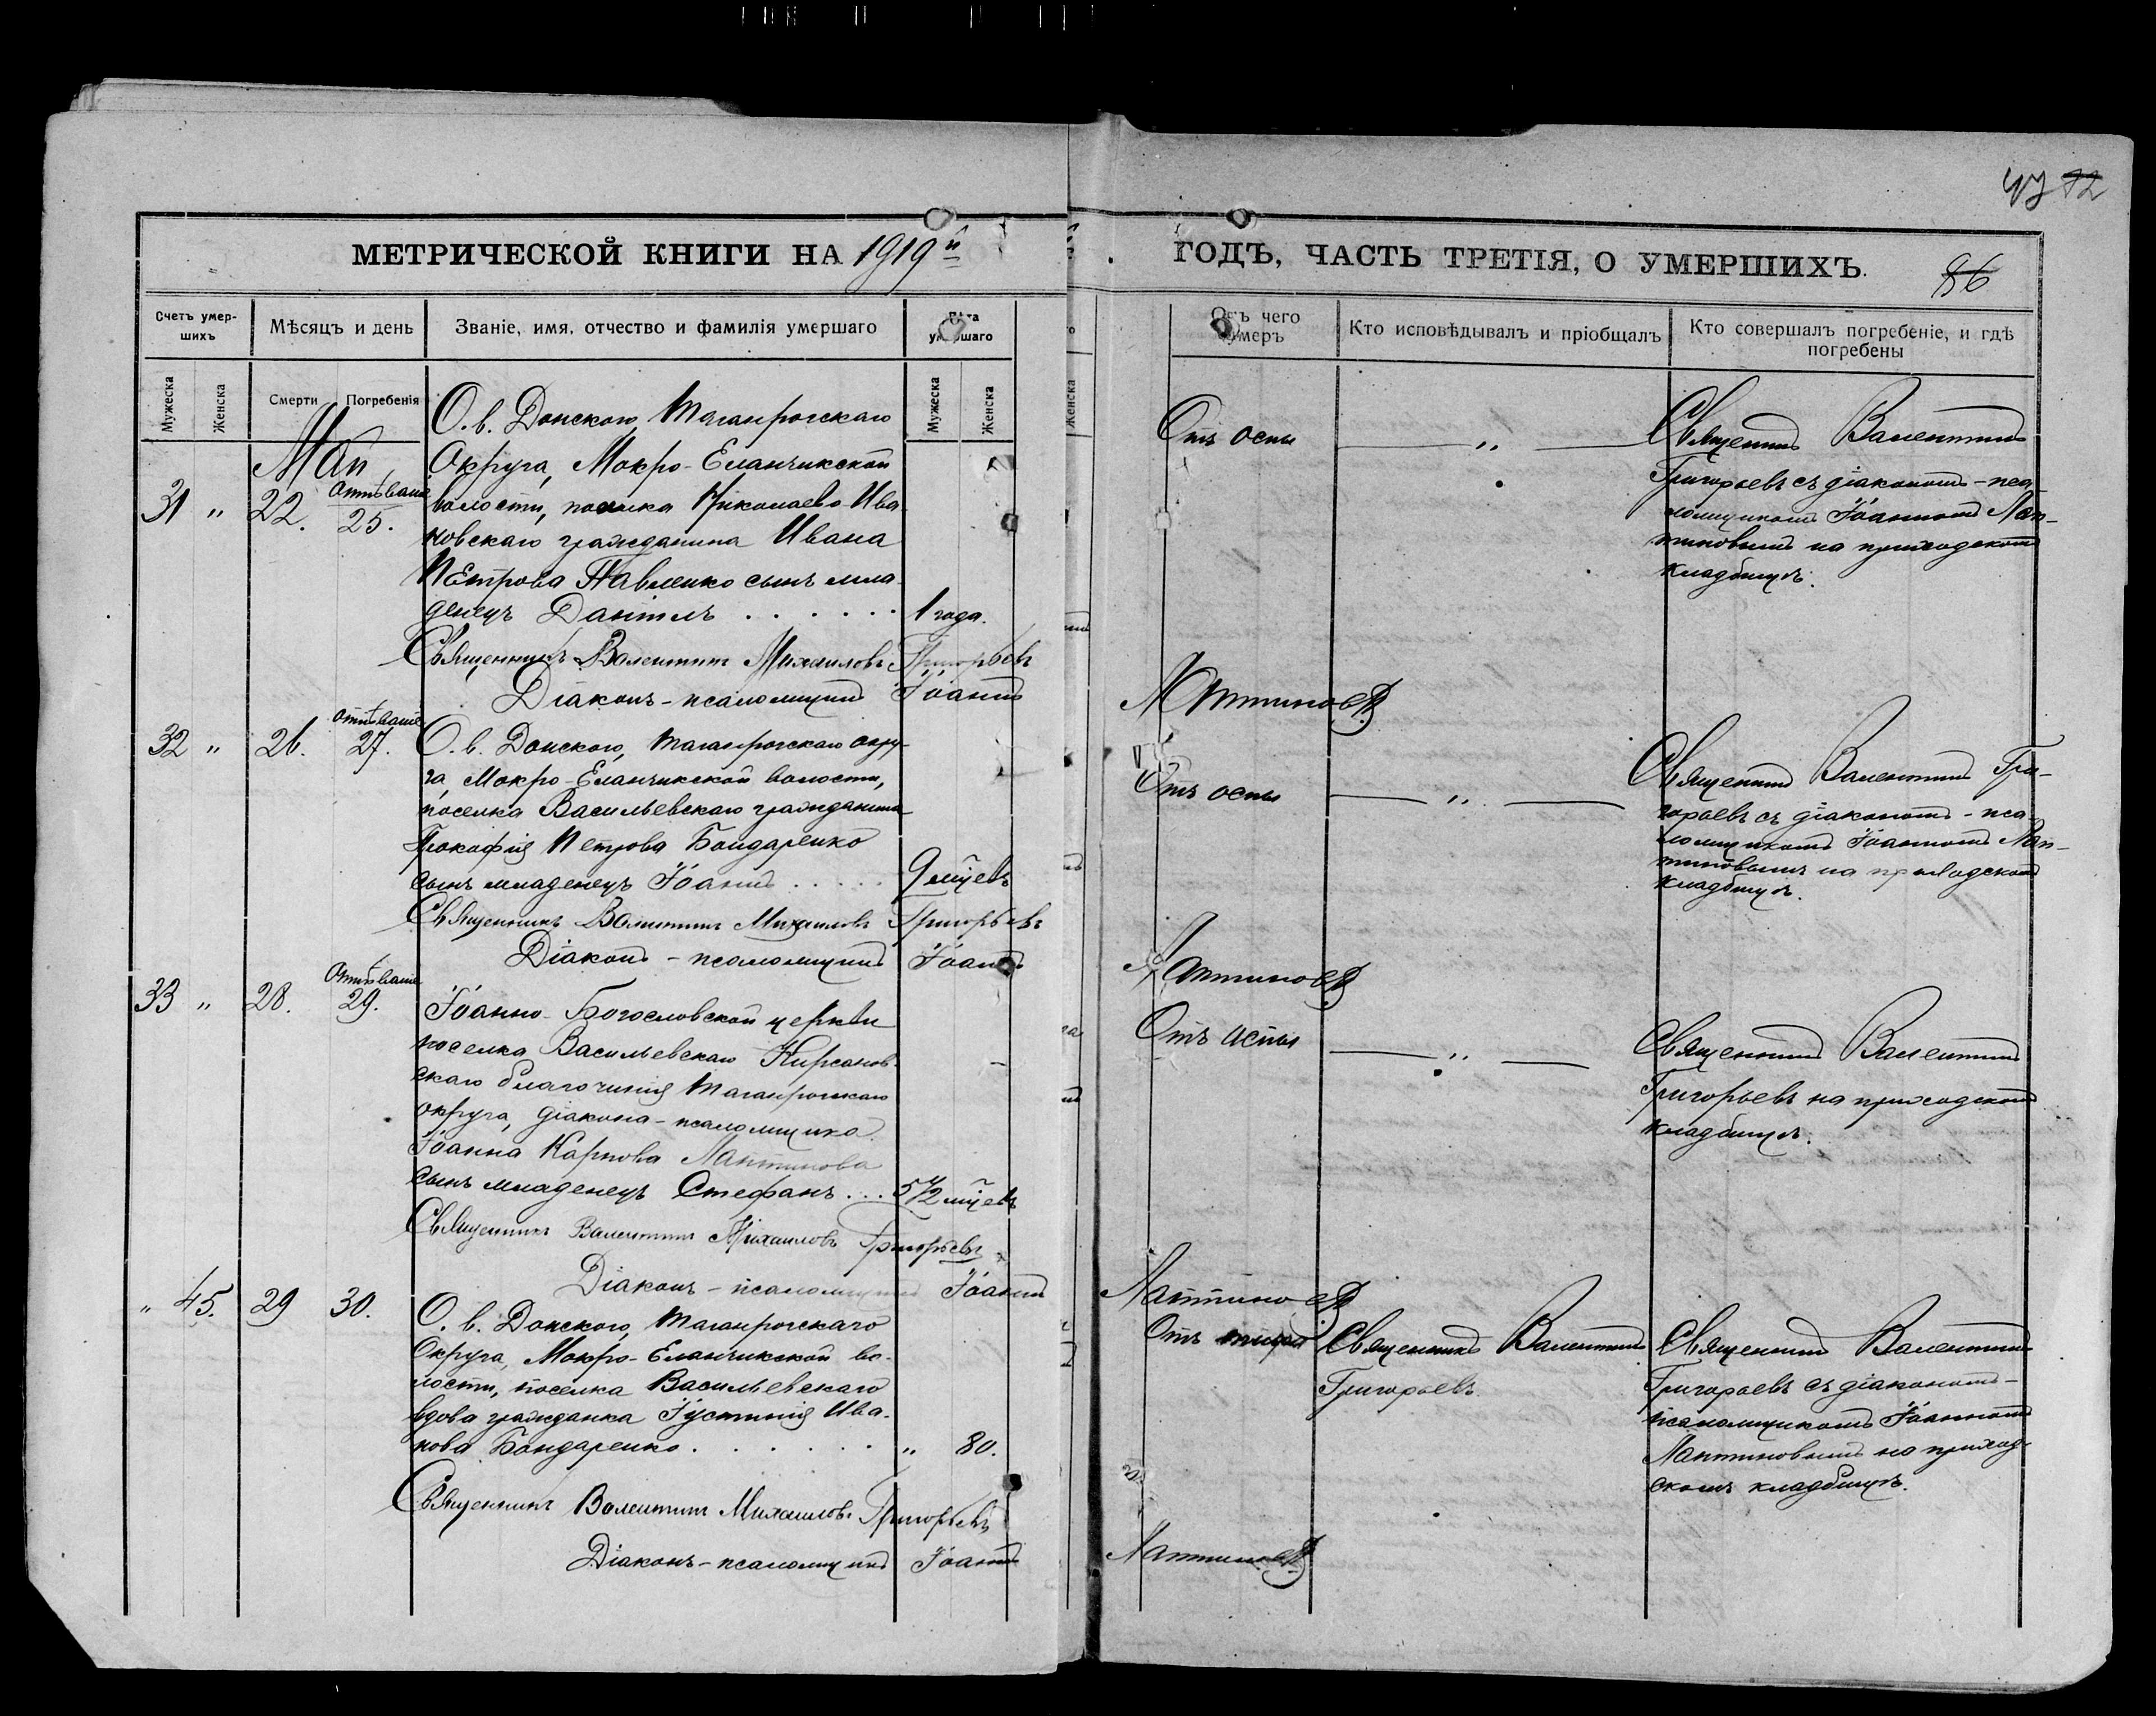 47 12
МЕТРИЧЕСКОЙ КНИГИ НА 1919й ГОДЪ, ЧАСТЬ ТРЕТІЯ, О УМЕРШИХЪ.
86
Счетъ умер-
шихъ
Мѣсяцъ и день
Званіе, имя, отчество и фамилія умершаго
Лѣта
умершаго
Отъ чего
умеръ
Кто исповѣдывалъ и пріобщалъ
Кто совершалъ погребеніе, и гдѣ
погребены
Мужеска
Женска
Смерти
Погребенія
Мужеска
Женска
Май
31 " 22. Отпѣваніе 25.
О. в. Донского, Таганрогскаго
Округа, Мокро-Еланчикской
волости, поселка Николаево-Ива
новскаго гражданина Ивана
Петрова Павленко сынъ мла
денецъ Даніилъ . . . . . . 1 года.
Отъ оспы
"
Священникъ Валентинъ
Григорьевъ съ діакономъ-пса
ломщикомъ Іоанномъ Лап-
тиновымъ на приходскомъ
кладбищѣ.
Священникъ Валентинъ Михаиловъ Григорьевъ
Діаконъ-псаломщикъ Іоаннъ Лаптиновъ
32 " 26. Отпѣваніе 27.
О. в. Донского, Таганрогскаго окру-
га, Мокро-Еланчикской волости,
поселка Васильевскаго гражданина
Прокофія Петрова Бондаренко
сынъ младенецъ Іоаннъ . . . . . 9 мцевъ
Отъ оспы
"
Священникъ Валентинъ Гри-
горьевъ съ діакономъ-пса
ломщикомъ Іоанномъ Лап-
тиновымъ на приходскомъ
кладбищѣ.
Священникъ Валентинъ Михаиловъ Григорьевъ
Діаконъ-псаломщикъ Іоаннъ Лаптиновъ
33 " 28. Отпѣваніе 29.
Іоанно-Богословской церкви
поселка Васильевскаго Кирсанов-
скаго благочинія Таганрогскаго
округа, діакона-псаломщика
Іоанна Карпова Лаптинова
сынъ младенецъ Стефанъ . . . 5 1/2 мцевъ
Отъ оспы
"
Священникъ Валентинъ
Григорьевъ на приходскомъ
кладбищѣ.
Священникъ Валентинъ Михаиловъ Григорьевъ
Діаконъ-псаломщикъ Іоаннъ Лаптиновъ
" 45. 29 30.
О. в. Донского, Таганрогскаго
Округа, Мокро-Еланчикской во-
лости, поселка Васильевскаго
вдова гражданка Іустинія Ива-
нова Бондаренко . . . . . . . " 80.
Отъ тифа
Священникъ Валентинъ
Григорьевъ
Священникъ Валентинъ
Григорьевъ съ діакономъ-
псаломщикомъ Іоанномъ
Лаптиновымъ на приход-
скомъ кладбищѣ.
Священникъ Валентинъ Михаиловъ Григорьевъ
Діаконъ-псаломщикъ Іоаннъ Лаптиновъ